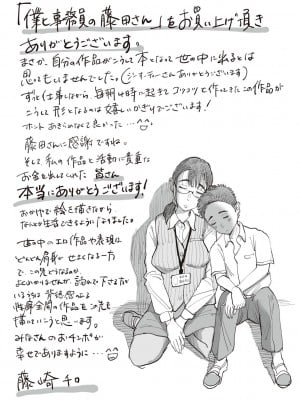 「僕と事務員の藤田さん」をお買い上げ頂き
ありがとうございます。
まさか、自分の作品がこうして本となって世の中に出るとは
思ってもいませんでした。
ずっと仕事しながら、毎朝4時に起きてコツコツと作ってきたこの作品が
こうして形となるのは嬉しいかぎりでございます!
ホントあきらめなくて良かった…
藤田さんに感謝ですね。
そして私の作品と活動に貴重な
お金を出してくれた皆さん
本当にありがとうございます!
おかげで絵を描きながら
なんとか生活できるようになりました。
世の中エロ作品や表現に
どんどん肩身がせまくなる一方
で、この先どうなるのか
よくわかりませんが、読んで下さる方が
いるうちは背徳感のある
性癖全開の作品をこの先も
描いていこうと思います。
みなさんのおチンポが
幸せでありますように…
藤崎チロ